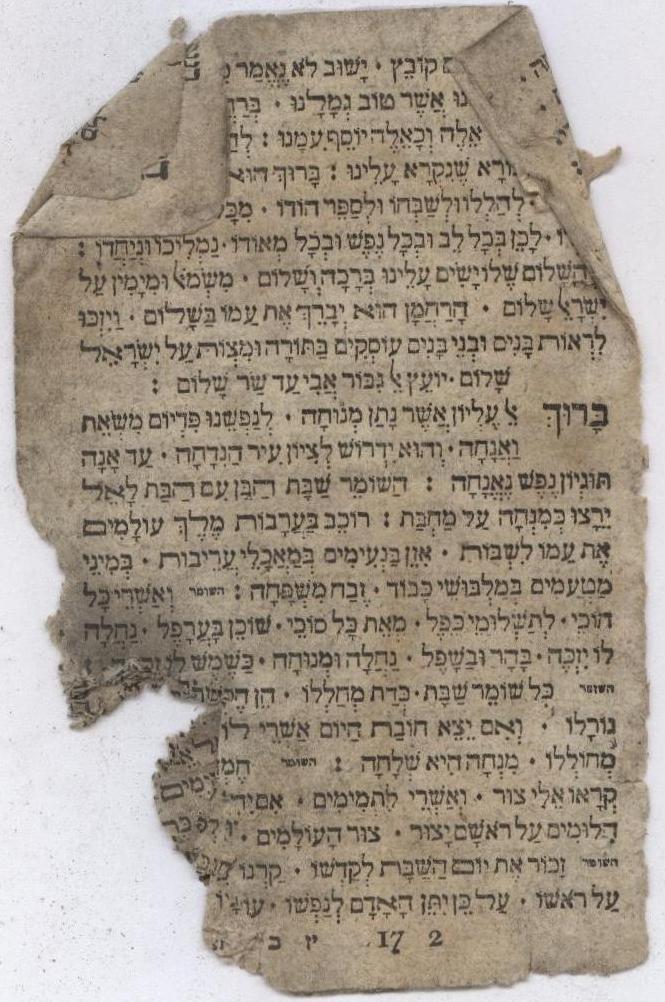 קובץ · ישוב לא נאמר
אשר טוב גמלנו ·
אלה וכאלה יוסף עמנו :
שנקרא עלינו : ברוך הוא
להללו ולשבחו ולספר הודו ·
לכן בכל לב ובכל נפש ובכל מאודו · נמליכו וניחדו :
שלו ישים עלינו ברכה ושלום · משמאל ומימין על
ישראל שלום · הרחמן הוא יברך את עמו בשלום · ויזכו
לראות בנים ובני בנים עוסקים בתורה ומצות על ישראל
שלום · יועץ אל גבור אבי עד שר שלום :
ברוך אל עליון אשר נתן מנוחה · לנפשנו פדיום משאת
ואנחה · והוא ידרוש לציון עיר הנדחה · עד אנה
תוגיון נפש נאנחה : השומר שבת הבן עם הבת לאל
ירצו כמנחה על מחבת : רוכב בערבות מלך עולמים
את עמו לשבות · אזן בנעימים במאכלי עריבות · במיני
מטעמים במלבושי כבוד · זבח משפחה : השומר ואשרי כל
חוכי · לתשלומי כפל · מאת כל סוכי · שוכן בערפל · נחלה
לו יזכה · בהר ובשפל · נחלה ומנוחה · כשמש לו
השומר כל שומר שבת · כדת מחללו · הן
גורלו · ואם יצא חובת היום אשרי לו
מחוללו · מנחה היא שלחה : השומר
קראו אלי צור · ואשרי לתמימים · אם
הלומים על ראשם יצור · צור העולמים ·
השומר זכור את יום השבת לקדשו · קרנו
על ראשו · על כן יתן האדם לנפשו ·
17 2 יז ב